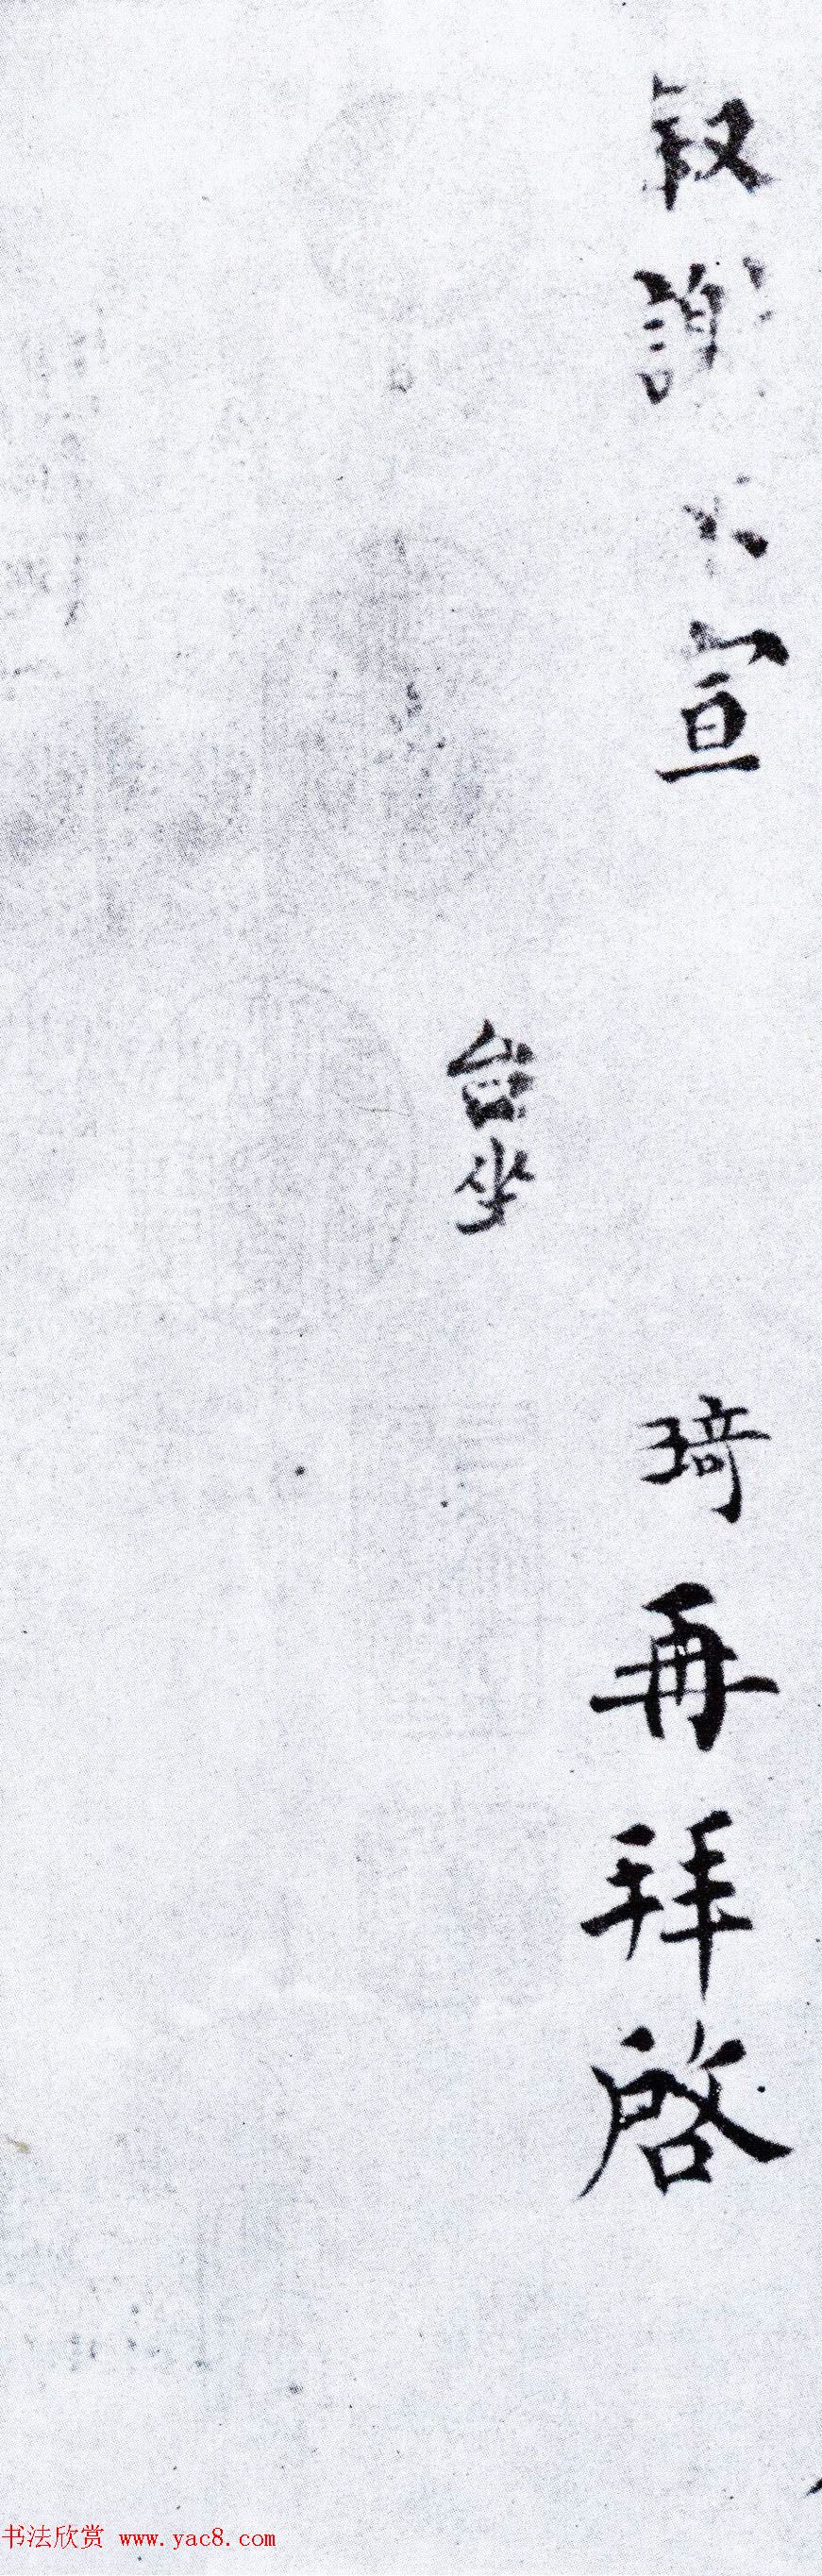 叙謝不宣 琦再拜啓
台坐
书法欣赏 www.yac8.com